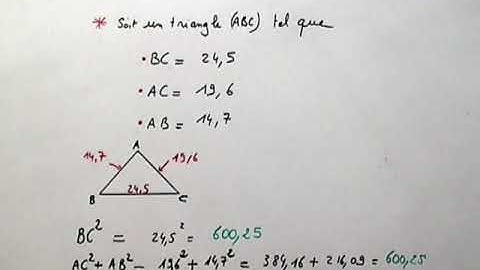 * Soit un triangle (ABC) tel que
• BC = 24,5
• AC = 19,6
• AB = 14,7
A
14,7
19,6
24,5
B
C
BC² = 24,5² = 600,25
AC² + AB² = 19,6² + 14,7² = 384,16 + 216,09 = 600,25